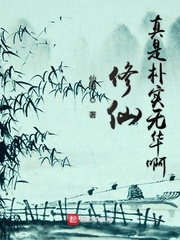 真是朴实无华啊
修仙
著